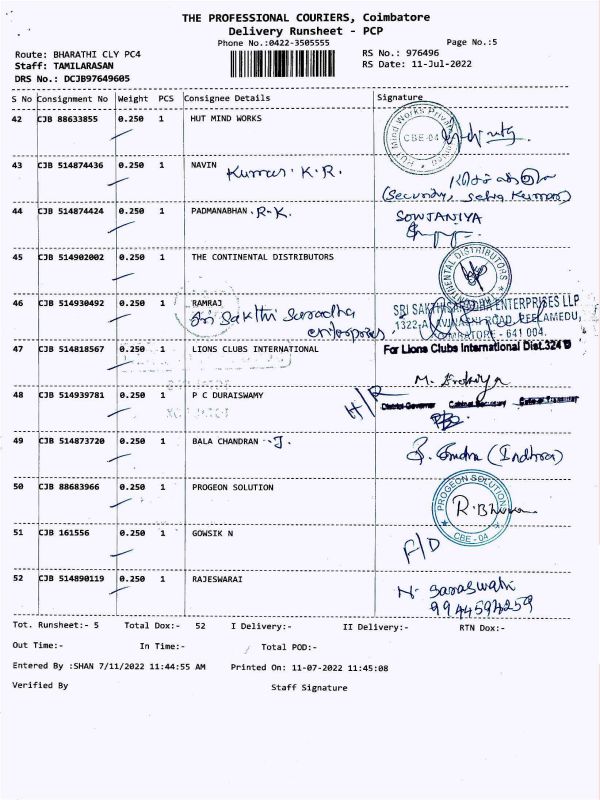 THE PROFESSIONAL COURIERS, Coimbatore
Delivery Runsheet - PCP
Phone No.:0422-3505555
Page No.:5
Route: BHARATHI CLY PC4
Staff: TAMILARASAN
DRS No.: DCJB97649605
RS No.: 976496
RS Date: 11-Jul-2022
S No Consignment No Weight PCS Consignee Details Signature
42 CJB 88633855 0.250 1 HUT MIND WORKS
CBE-04
43 CJB 514874436 0.250 1 NAVIN Kumar. K.R.
(Security,
44 CJB 514874424 0.250 1 PADMANABHAN . R-K. SOWJANIYA
45 CJB 514902002 0.250 1 THE CONTINENTAL DISTRIBUTORS
46 CJB 514930492 0.250 1 RAMRAJ
Sri Sakthi Saradha
enterprises
SRI SAKTHI SARADHA ENTERPRISES LLP
1322, AVINASHI ROAD, PEELAMEDU,
COIMBATORE - 641 004.
47 CJB 514818567 0.250 1 LIONS CLUBS INTERNATIONAL For Lions Clubs International Dist.324 D
48 CJB 514939781 0.250 1 P C DURAISWAMY H/R
District Governor Cabinet Secretary Cabinet Treasurer
49 CJB 514873720 0.250 1 BALA CHANDRAN - J. (Indhra)
50 CJB 88683966 0.250 1 PROGEON SOLUTION
PROGEON SOLUTION
CBE-04
51 CJB 161556 0.250 1 GOWSIK N F/D
52 CJB 514890119 0.250 1 RAJESWARAI N. Saraswathi
9944594259
Tot. Runsheet:- 5 Total Dox:- 52 I Delivery:- II Delivery:- RTN Dox:-
Out Time:- In Time:- Total POD:-
Entered By :SHAN 7/11/2022 11:44:55 AM Printed On: 11-07-2022 11:45:08
Verified By Staff Signature